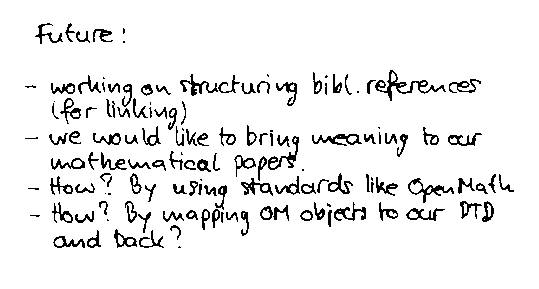 Future:
- working on structuring bibl. references
(for linking)
- we would like to bring meaning to our
mathematical papers.
- How? By using standards like OpenMath
- How? By mapping OM objects to our DTD
and back?